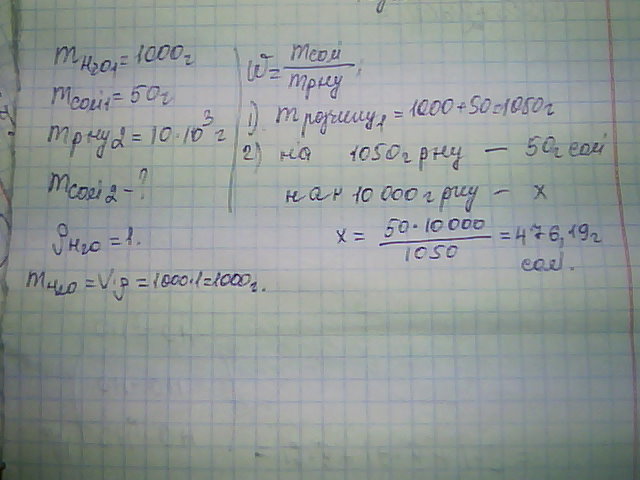 m H2O1 = 1000г
m солі1 = 50г
m р-ну2 = 10·10³ г
m солі2 - ?
ρ H2O = 1.
m H2O = V·ρ = 1000·1=1000г.
W = m солі / m р-ну;
1) m розчину1 = 1000+50=1050г
2) на 1050г р-ну — 50г солі
на 10 000 г р-ну - x
x = 50·10000 / 1050 = 476,19г
солі.